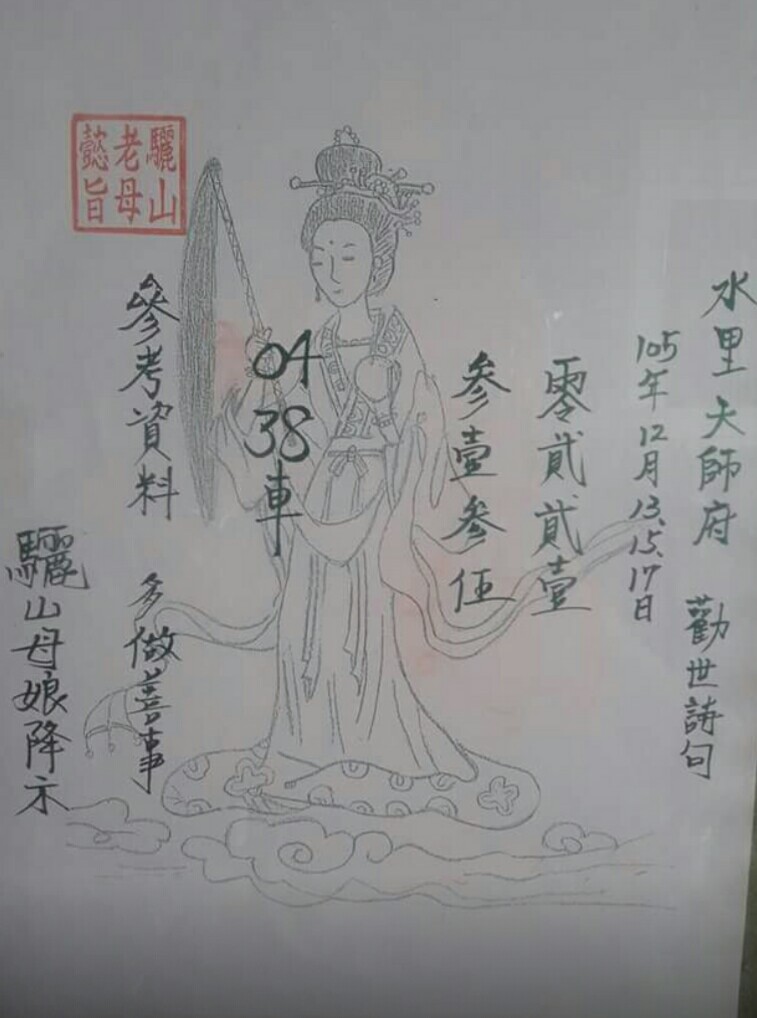 水里天師府 勸世詩句
105年12月13、15、17日
零貳貳壹
參壹參伍
04
38車
參考資料 多做善事
驪山母娘降示
驪山
老母
懿旨